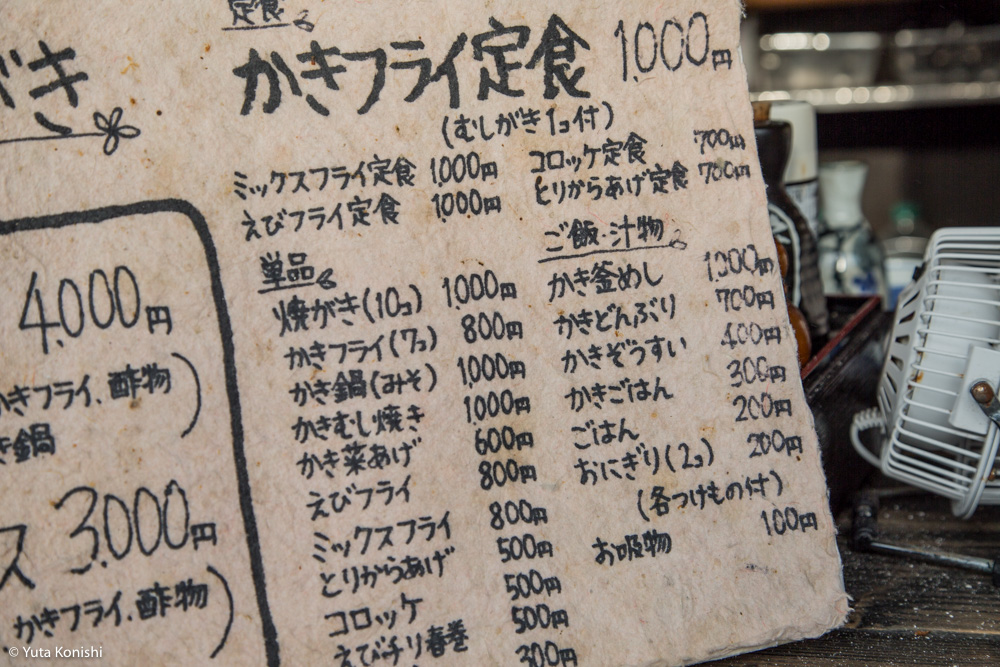 定食
がき
かきフライ定食 1,000円
(むしがき1コ付)
ミックスフライ定食 1,000円
えびフライ定食 1,000円
コロッケ定食 700円
とりからあげ定食 700円
単品
焼がき(10コ) 1,000円
かきフライ(7コ) 800円
かき鍋(みそ) 1,000円
かきむし焼き 1000円
かき葉あげ 600円
えびフライ 800円
ミックスフライ 800円
とりからあげ 500円
コロッケ 500円
えびチリ春巻 500円
300円
ご飯・汁物
かき釜めし
かきどんぶり 700円
かきぞうすい 400円
かきごはん 300円
ごはん 200円
おにぎり(2コ) 200円
(各つけもの付)
お吸物 100円
4,000円
かきフライ、酢物
き鍋
ス 3,000円
かきフライ、酢物
© Yuta Konishi